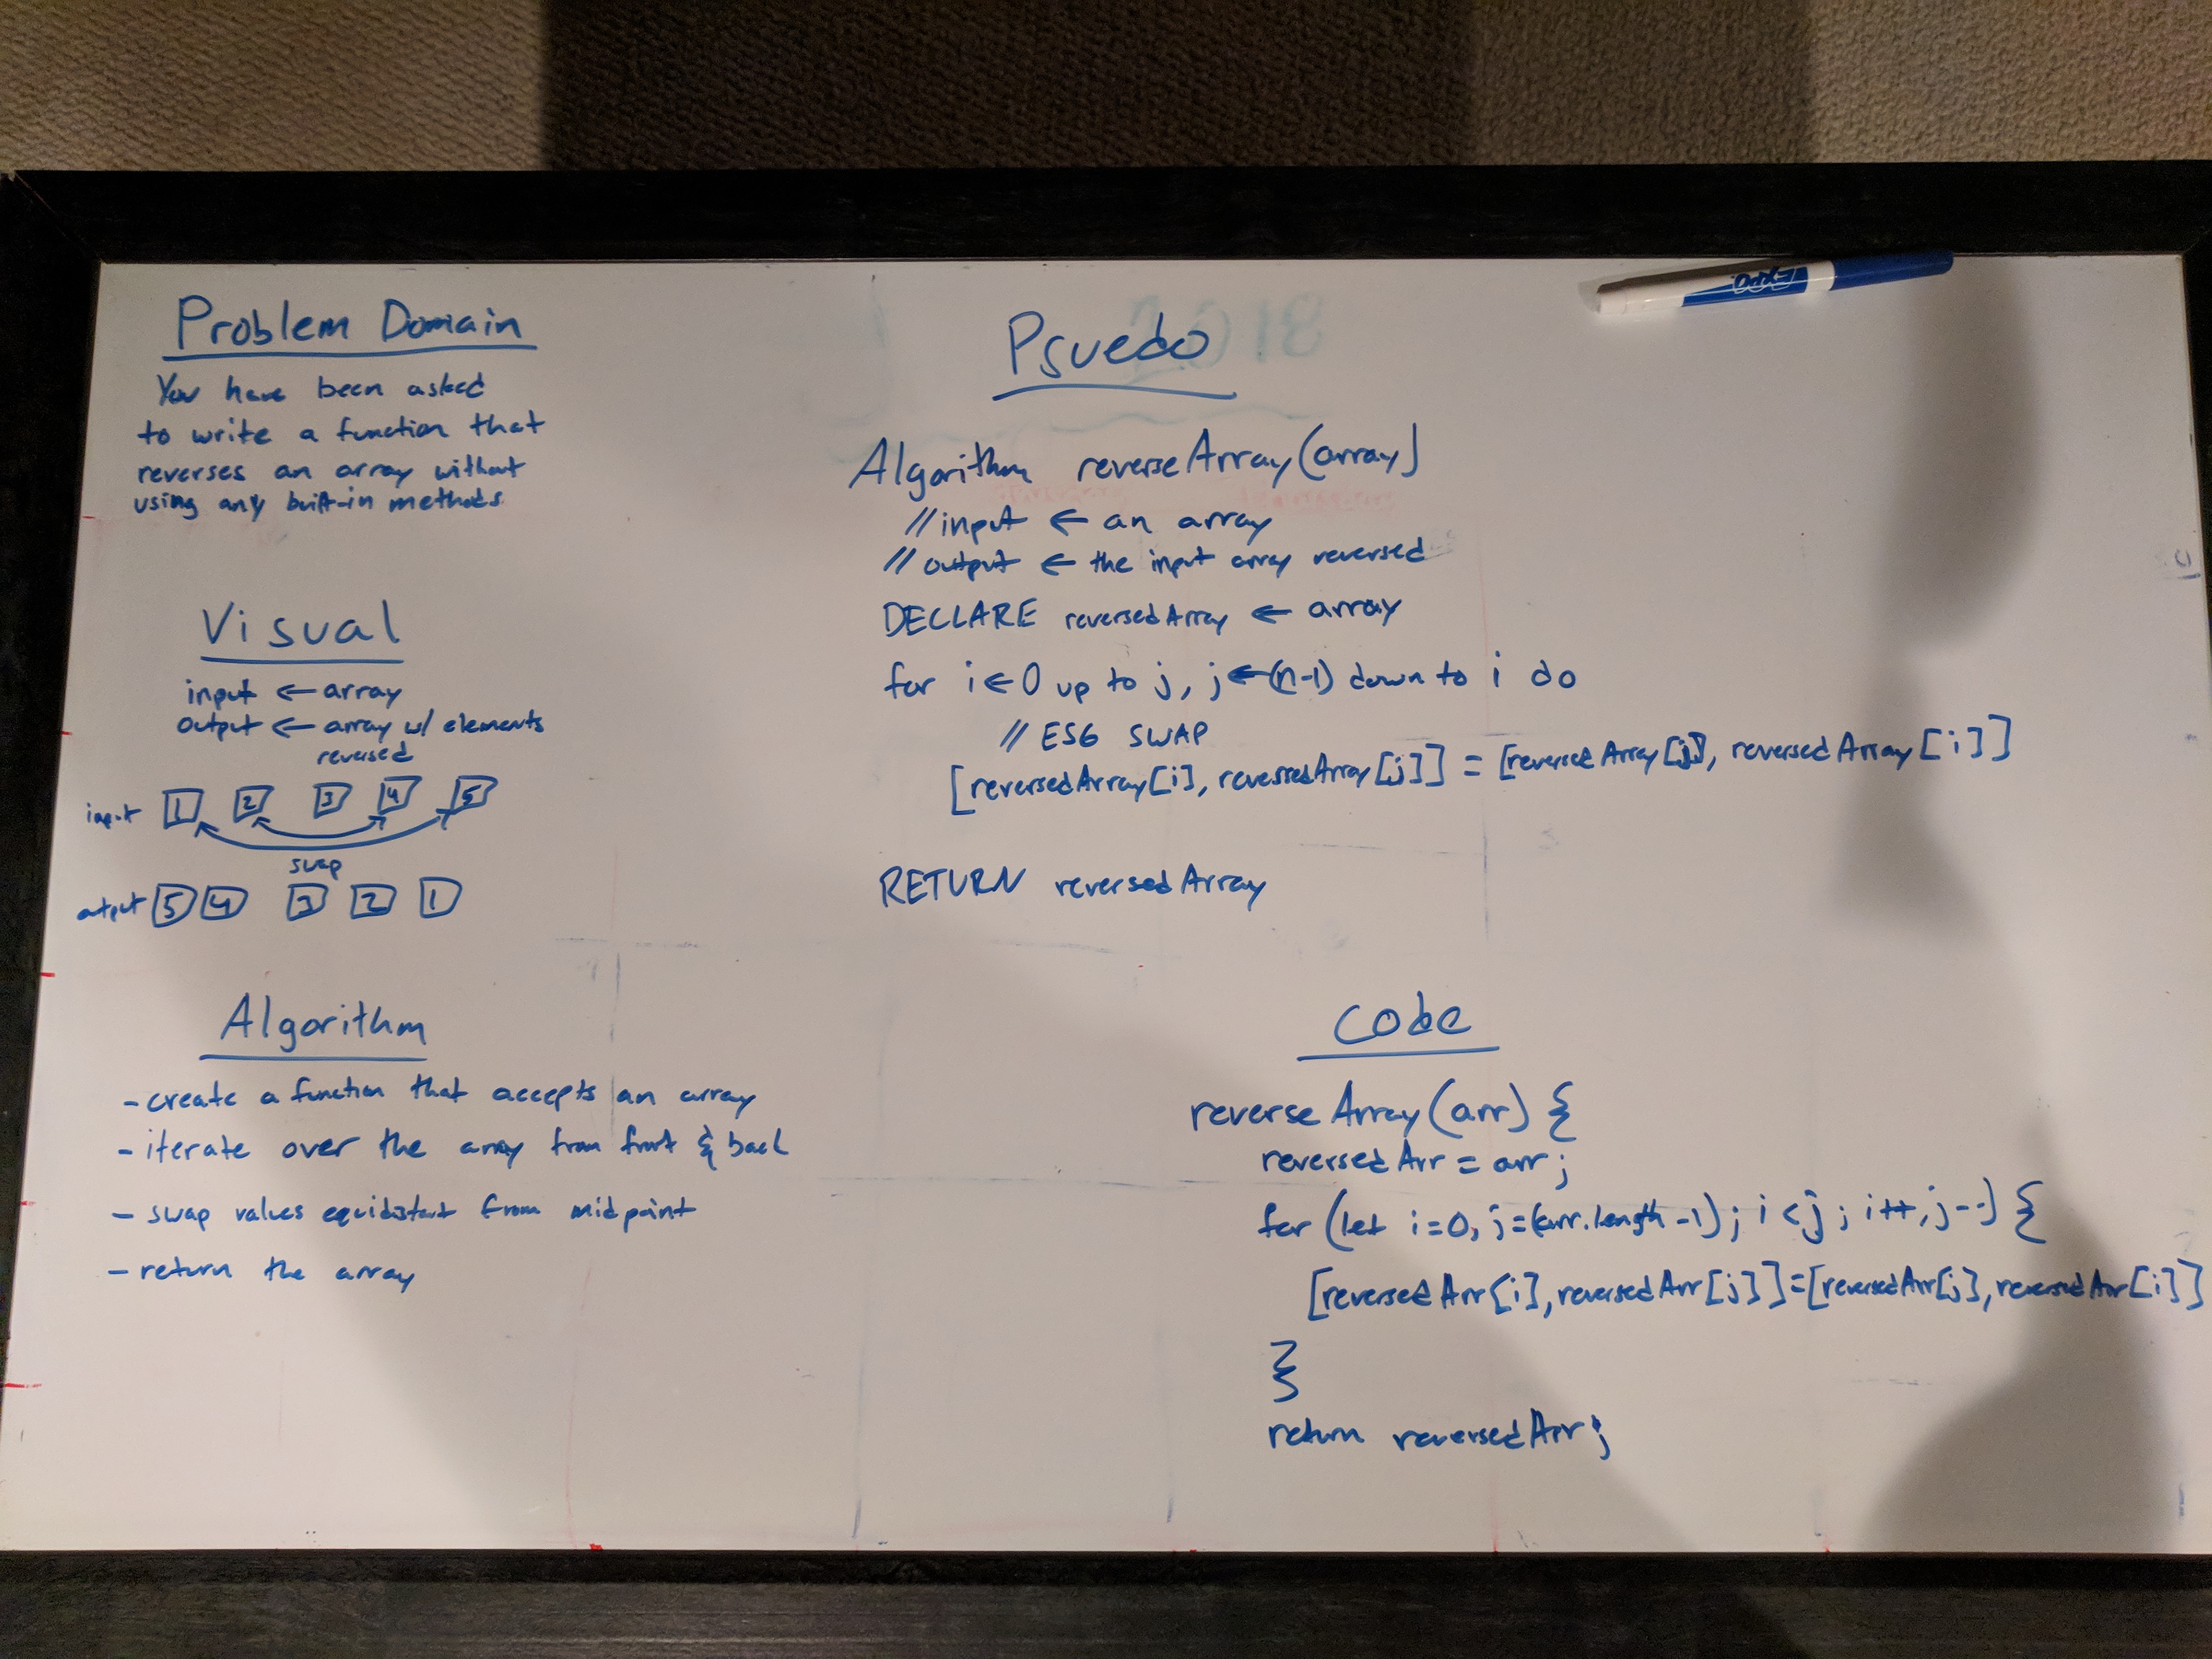 Problem Domain
You have been asked
to write a function that
reverses an array without
using any built-in methods
Visual
input ← array
output ← array w/ elements
reversed
input 1 2 3 4 5
swap
output 5 4 3 2 1
Algorithm
- create a function that accepts an array
- iterate over the array from front & back
- swap values equidistant from midpoint
- return the array
Psuedo
Algorithm reverseArray(array)
// input ← an array
// output ← the input array reversed
DECLARE reversedArray ← array
for i ← 0 up to j, j ← (n-1) down to i do
// ES6 SWAP
[reversedArray[i], reversedArray[j]] = [reversedArray[j], reversedArray[i]]
RETURN reversedArray
Code
reverseArray(arr) {
reversedArr = arr;
for (let i=0, j=(arr.length -1); i < j; i++, j--) {
[reversedArr[i], reversedArr[j]]=[reversedArr[j], reversedArr[i]]
}
return reversedArr;
EXPO